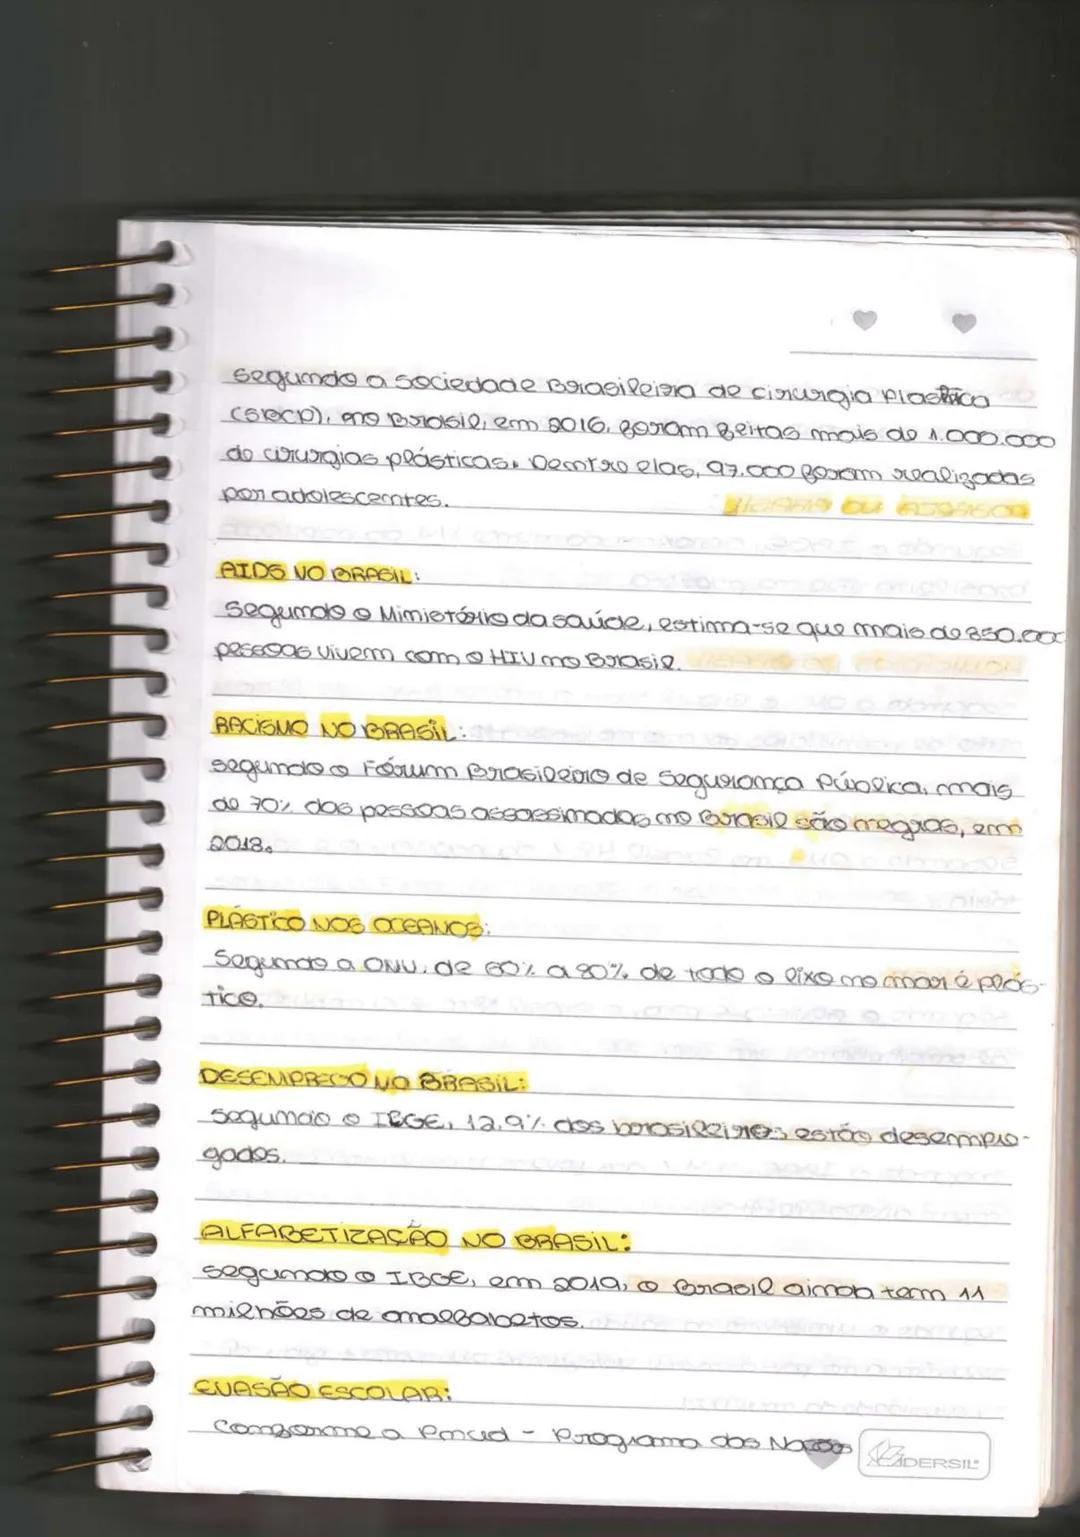 segundo a sociedade Brasileira de cirurgia Plastica
(SBCP), no Brasil, em 2016, foram feitas mais de 1.000.000
de cirurgias plásticas. Dentro elas, 97.000 foram realizadas
por adolescentes.
AIDS NO BRASIL:
Segundo o Ministério da saúde, estima-se que mais de 850.000
pessoas vivem com o HIV no Brasil.
RACISMO NO BRASIL:
segundo o Fórum Brasileiro de Segurança Pública, mais
de 70% das pessoas assassinadas no Brasil são negras, em
2018.
PLÁSTICO NOS OCEANOS:
Segundo a ONU, de 60% a 80% de todo o lixo no mar é plás-
tico.
DESEMPREGO NO BRASIL:
segundo o IBGE, 12,9% dos brasileiros estão desempre-
gados.
ALFABETIZAÇÃO NO BRASIL:
segundo o IBGE, em 2019, o Brasil ainda tem 11
milhões de analfabetos.
EVASÃO ESCOLAR:
Conforme a Pnud - Programa das Nações
DERSIL